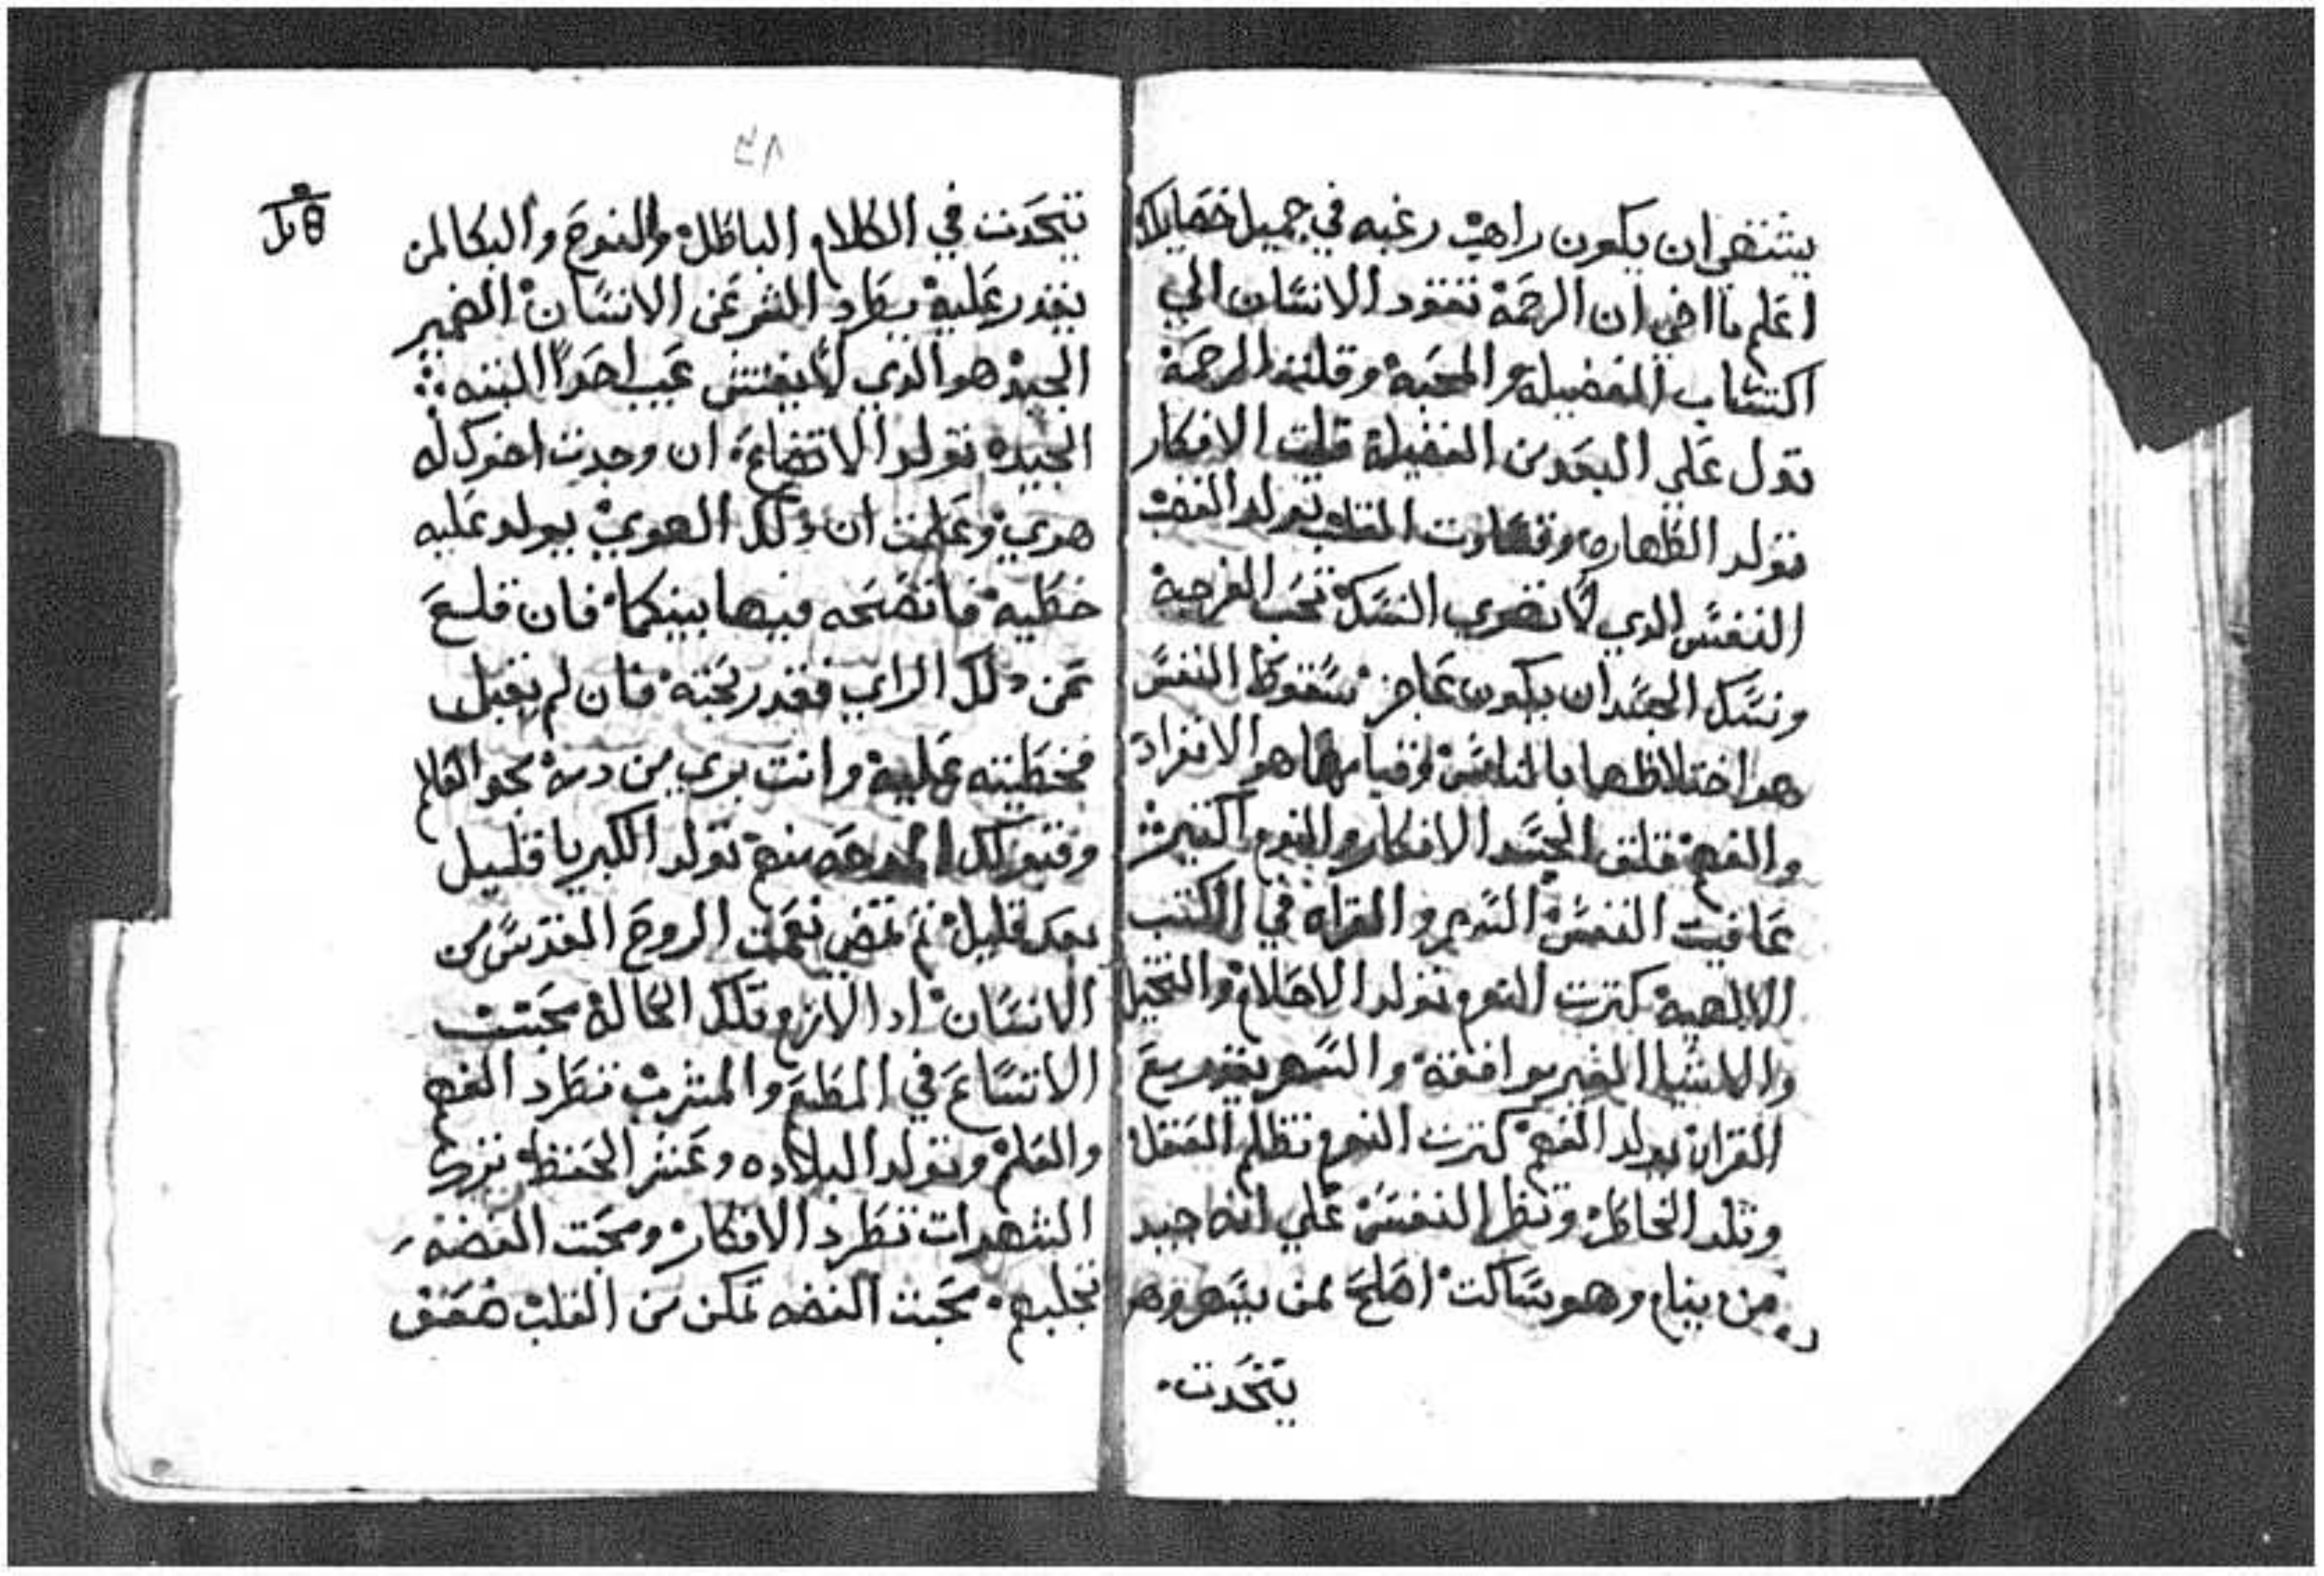 يشتهي ان يكون راهب رغبه في جميل خصايلك
اعلم يا اخي ان الرحمة تقود الانسان الي
اكتساب الفضيلة والمحبة وقلة الرحمة
تدل علي البعد من الفضيلة قلت الافكار
تولد الطهاره وقساوت القلب تولد الغضب
النفس الدي لا تهوي النسك تحب الفرجة
ونسك الجسد ان يكون عاجز سقوط النفس
هو اختلاطها بالناس وقيامها هو الانفراد
والفهم قلق الجسد الافكار والنوم الكتير
عافيت النفس السهر والقراه في الكتب
الالهية كترت النوم تولد الاحلام والتخيل
والاشيا الغير موافقة والسهر بتقدير مع
القران يولد الفهم كترت النوم تظلم العقل
وتلد الخاطر وتظل النفس علي انه جيد
من ينام وهو ساكت اصلح لمن يسهر وهو
يتحدت
٢٨
يتحدت في الكلام الباطل والنوح والبكا لمن
يقدر عليه يطرد الشر عن الانسان الضمير
الجيد هو الدي لا يفتش عيب احدا النيه
الجيده تولد الاتضاع ان وجدت اخوك له
هوي وعلمت ان دلك الهوي يولد عليه
خطية فانصحه فيها بينكما فان قلع
عن دلك الراي فقد ربحته فان لم يقبل
فخطيته عليه وانت بري من دمه نحو الكلام
وقبولك المدحه منهم تولد الكبريا قليل
بعد قليل تم تمضي نعمت الروح القدس من
الانسان ادا لازم تلك الحالة محبت
الاتساع في المطعم والمشرب تطرد الفهم
والعلم وتولد البلاده وعسر الحفظ ترك
الشهوات تطرد الافكار ومحبت الفضه
تجلبهم محبت الفضه تمكن من القلب ضعف